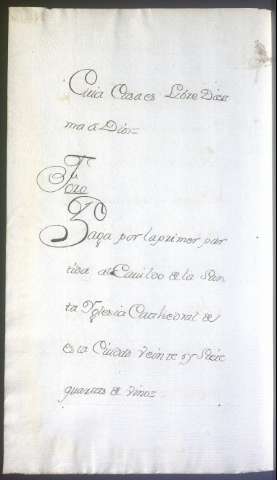 Cuia Casa es Libre Diez
ma a Dios=
Fu
Foro
Paga por la primer par
tida al Cavildo de la San
ta Yglesia Cathedral de
esta Ciudad veinte y Siete
quartas de vino=